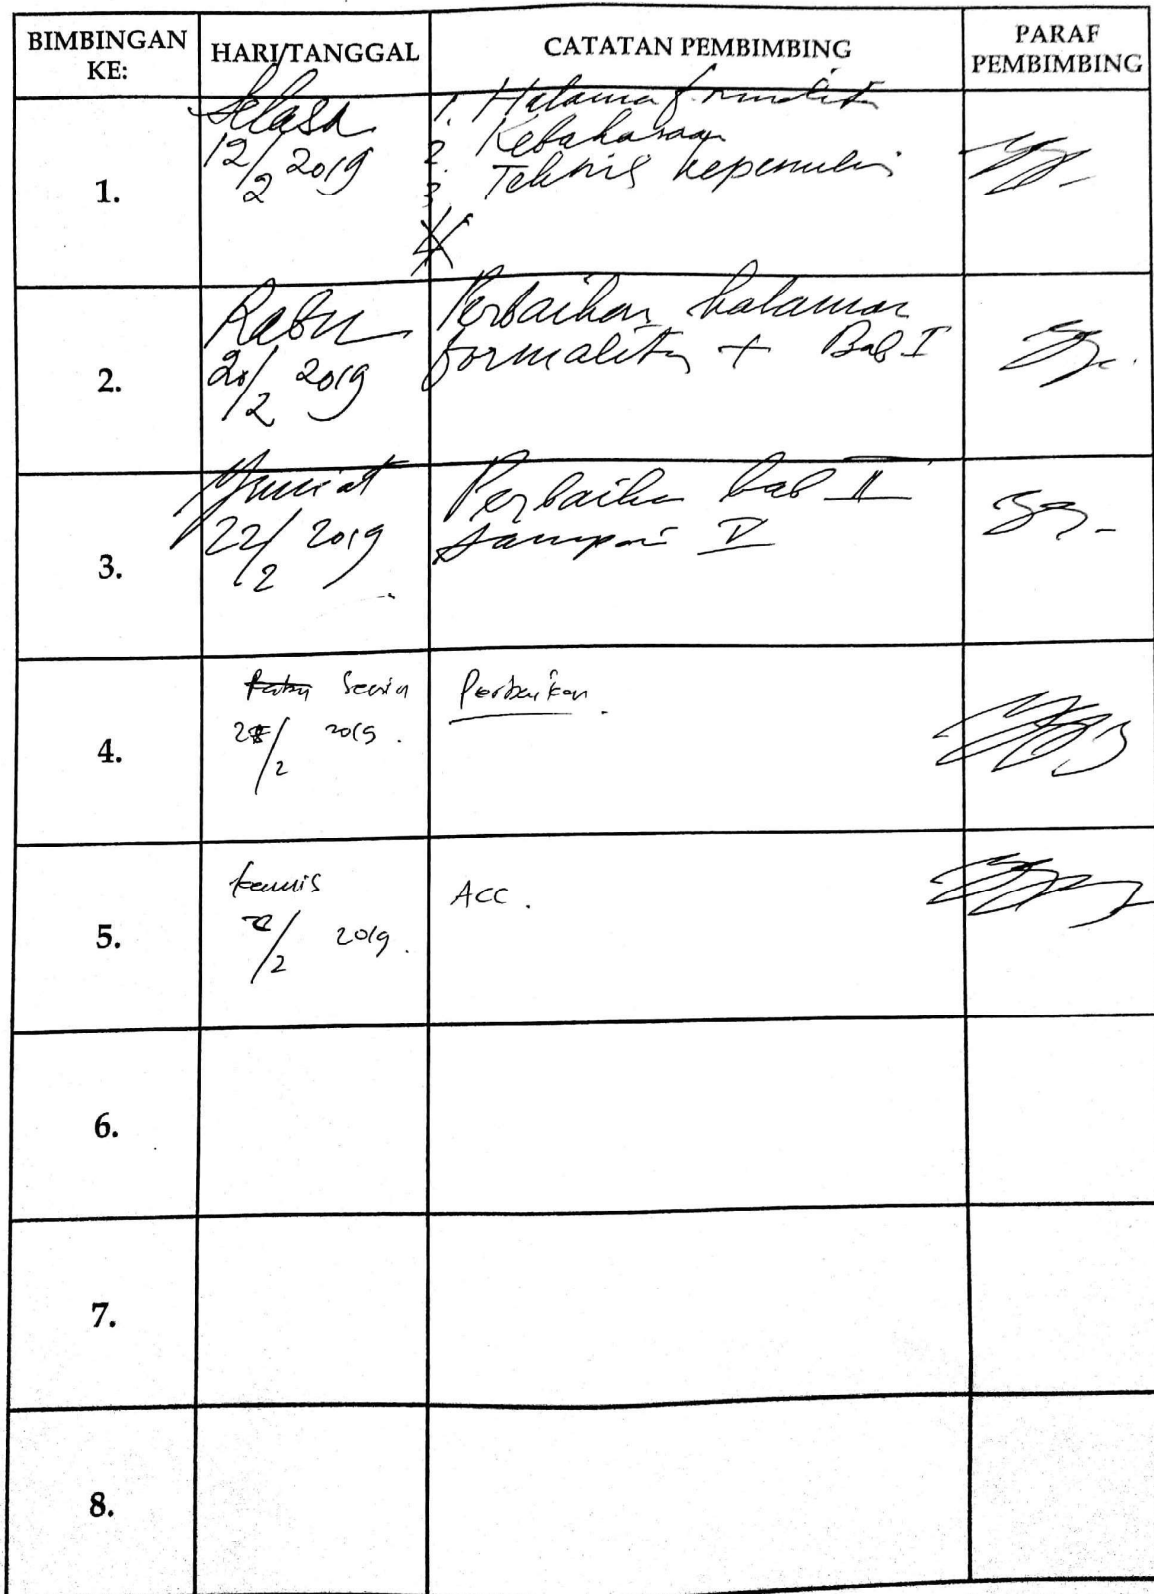 BIMBINGAN KE:
HARI/TANGGAL
CATATAN PEMBIMBING
PARAF PEMBIMBING
1.
Selasa
12/2 2019
1. Halaman formalitas
2. Kebahasaan
3. Teknis kepenulis
4
2.
Rabu
20/2 2019
Perbaikan halaman
formalitas + Bab I
3.
Jum'at
22/2 2019
Perbaikan bab II
sampai V
4.
Rabu Senin
2 /2 2019.
Perbaikan.
5.
Kamis
/2 2019.
ACC.
6.
7.
8.